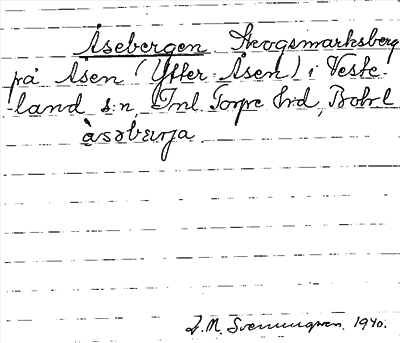 Åsebergen Skogsmarksberg
på Åsen (Ytter Åsen) i Veste-
land s:n, Inl Torpe hrd, Bohl
åsəbærja
J. M. Svenungsson. 1940.